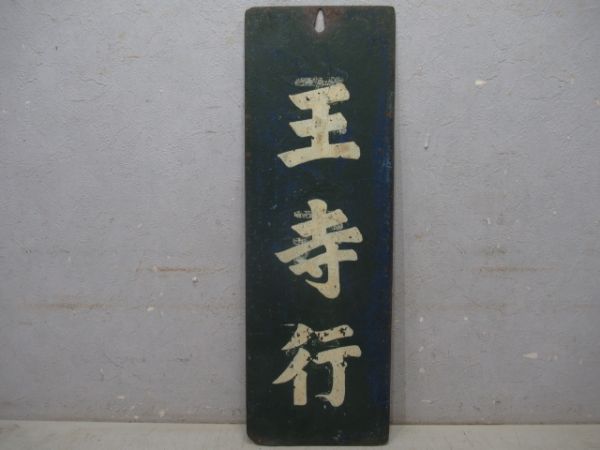 王寺行